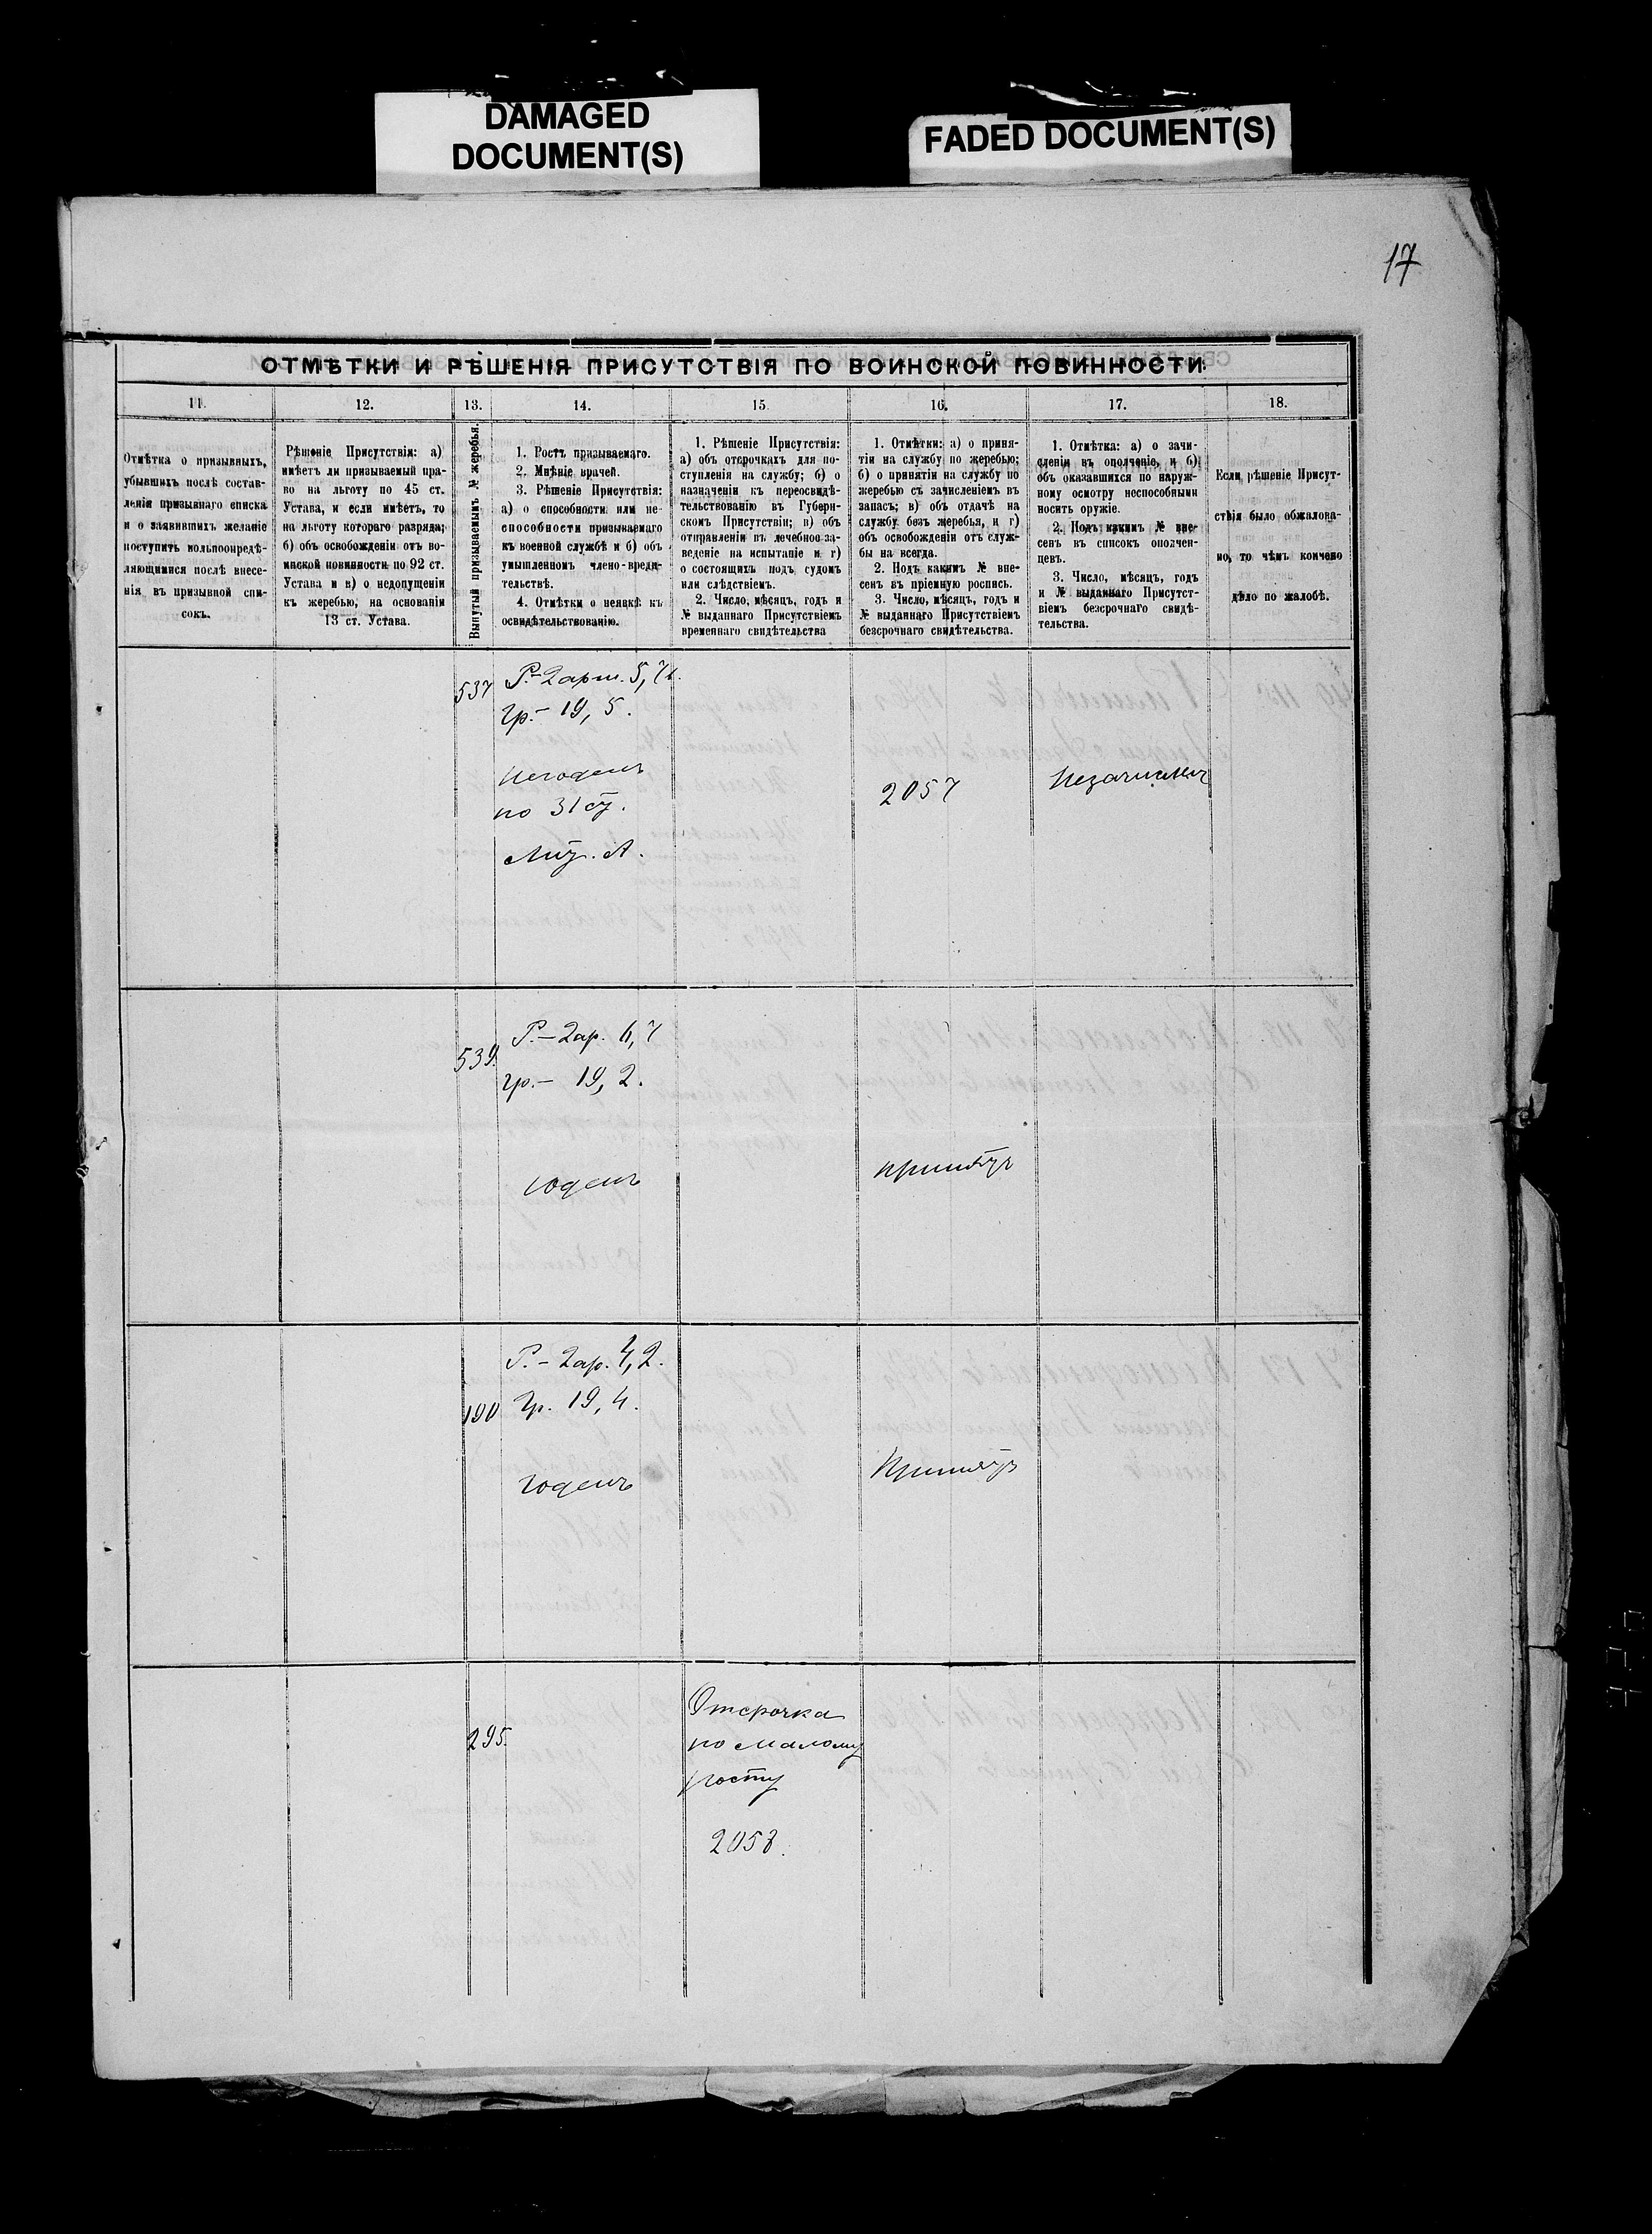 DAMAGED
DOCUMENT(S)
FADED DOCUMENT(S)
17
ОТМѢТКИ И РѢШЕНІЯ ПРИСУТСТВІЯ ПО ВОИНСКОЙ ПОВИННОСТИ.
11.
12.
13.
14.
15
16.
17.
18.
Отмѣтка о призывныхъ,
убывшихъ послѣ состав-
ленія призывнаго списка
и о заявившихъ желаніе
поступить вольноопредѣ-
ляющимися послѣ внесе-
нія въ призывной спи-
сокъ.
Рѣшеніе Присутствія: а)
имѣетъ ли призываемый пра-
во на льготу по 45 ст.
Устава, и если имѣетъ, то
на льготу котораго разряда;
б) объ освобожденіи отъ во-
инской повинности по 92 ст.
Устава и в) о недопущеніи
къ жеребью, на основаніи
13 ст. Устава.
Вынутый призываемымъ № жеребья.
1. Ростъ призываемаго.
2. Мнѣніе врачей.
3. Рѣшеніе Присутствія:
а) о способности или не-
способности призываемаго
къ военной службѣ и б) объ
умышленномъ члено-вреди-
тельствѣ.
4. Отмѣтки о неявкѣ къ
освидѣтельствованію.
1. Рѣшеніе Присутствія:
а) объ отсрочкахъ для по-
ступленія на службу; б) о
назначеніи къ переосвидѣ-
тельствованію въ Губерн-
скомъ Присутствіи; в) объ
отправленіи въ лечебное за-
веденіе на испытаніе и г)
о состоящихъ подъ судомъ
или слѣдствіемъ.
2. Число, мѣсяцъ, годъ и
№ выданнаго Присутствіемъ
временнаго свидѣтельства
1. Отмѣтки: а) о приня-
тіи на службу по жеребью;
б) о принятіи на службу по
жеребью съ зачисленіемъ въ
запасъ; в) объ отдачѣ на
службу безъ жеребья, и г)
объ освобожденіи отъ служ-
бы на всегда.
2. Подъ какимъ № вне-
сенъ въ пріемную роспись.
3. Число, мѣсяцъ, годъ и
№ выданнаго Присутствіемъ
безсрочнаго свидѣтельства.
1. Отмѣтка: а) о зачи-
сленіи въ ополченіе, и б)
объ оказавшихся по наруж-
ному осмотру неспособными
носить оружіе.
2. Подъ какимъ № вне-
сенъ въ списокъ ополчен-
цевъ.
3. Число, мѣсяцъ, годъ
и № выданнаго Присутст-
віемъ безсрочнаго свидѣ-
тельства.
Если рѣшеніе Присут-
ствія было обжалова-
но, то чѣмъ кончено
дѣло по жалобѣ.
537
Р.-2 арш. 5,
Гр.- 19, 5.
Негоденъ
по 31 ст.
Лит. А.
2057
Незачислен
539.
Р.-2 ар. 6, 7
гр.- 19, 2.
годенъ
принятъ
190
Р.-2 ар. 4, 2.
Гр. 19, 4.
годенъ
Принятъ
295.
Отсрочка
по малому
росту
2058.